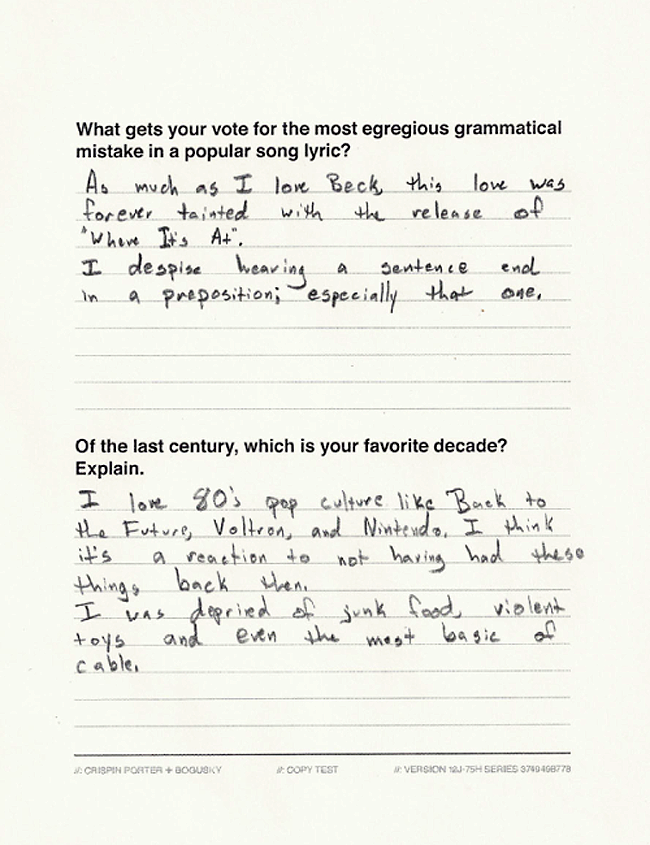 What gets your vote for the most egregious grammatical
mistake in a popular song lyric?
As much as I love Beck, this love was
forever tainted with the release of
"Where It's At".
I despise hearing a sentence end
in a preposition; especially that one.
Of the last century, which is your favorite decade?
Explain.
I love 80's pop culture like Back to
the Future, Voltron, and Nintendo. I think
it's a reaction to not having had these
things back then.
I was deprived of junk food, violent
toys and even the most basic of
cable.
//: CRISPIN PORTER + BOGUSKY //: COPY TEST //: VERSION 12J-75H SERIES 3749498778